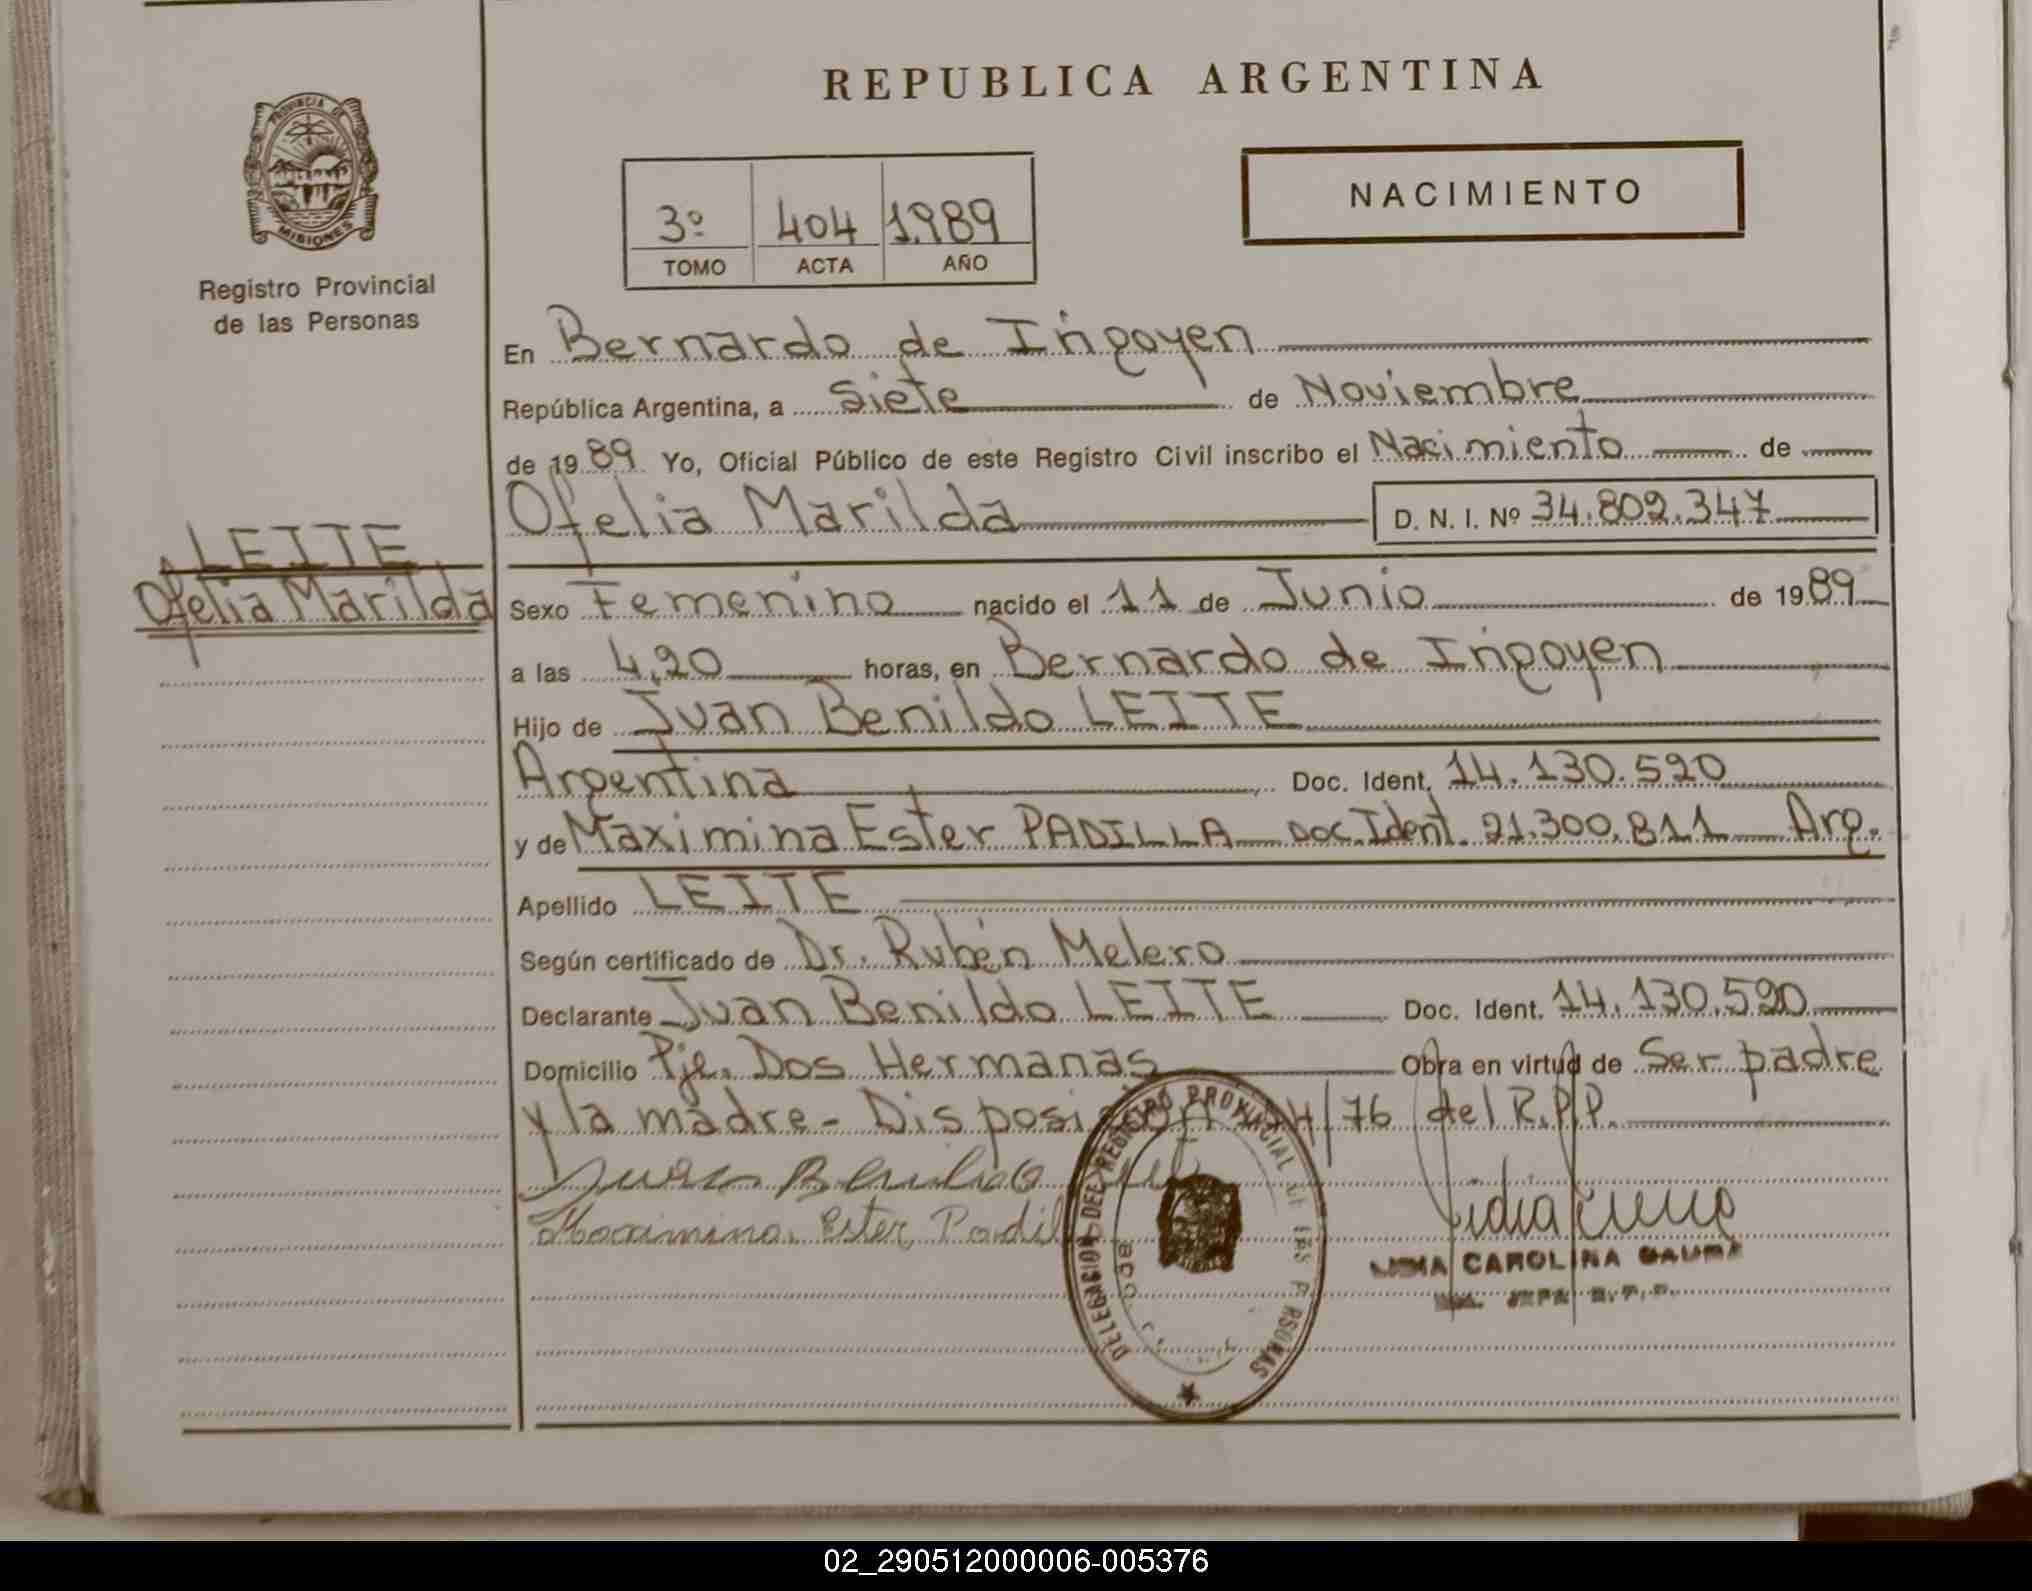 REPUBLICA ARGENTINA
PROVINCIA DE
MISIONES
Registro Provincial
de las Personas
3º 404 1.989
TOMO ACTA AÑO
NACIMIENTO
En Bernardo de Irigoyen
República Argentina, a Siete de Noviembre
de 1989 Yo, Oficial Público de este Registro Civil inscribo el Nacimiento de
Ofelia Marilda D. N. I. Nº 34.802.347
LEITE
Ofelia Marilda
Sexo Femenino nacido el 11 de Junio de 1989
a las 4,20 horas, en Bernardo de Irigoyen
Hijo de Juan Benildo LEITE
Argentina Doc. Ident. 14.130.520
y de Maximina Ester PADILLA Doc. Ident. 21.300.811 Arg.
Apellido LEITE
Según certificado de Dr. Rubén Melero
Declarante Juan Benildo LEITE Doc. Ident. 14.130.520
Domicilio Pje. Dos Hermanas Obra en virtud de Ser padre
y la madre - /76 del R.P.P.
Juan Benildo
Maximina Ester
DELEGACION DEL REGISTRO PROVINCIAL DE LAS PERSONAS
CAROLINA
02_290512000006-005376